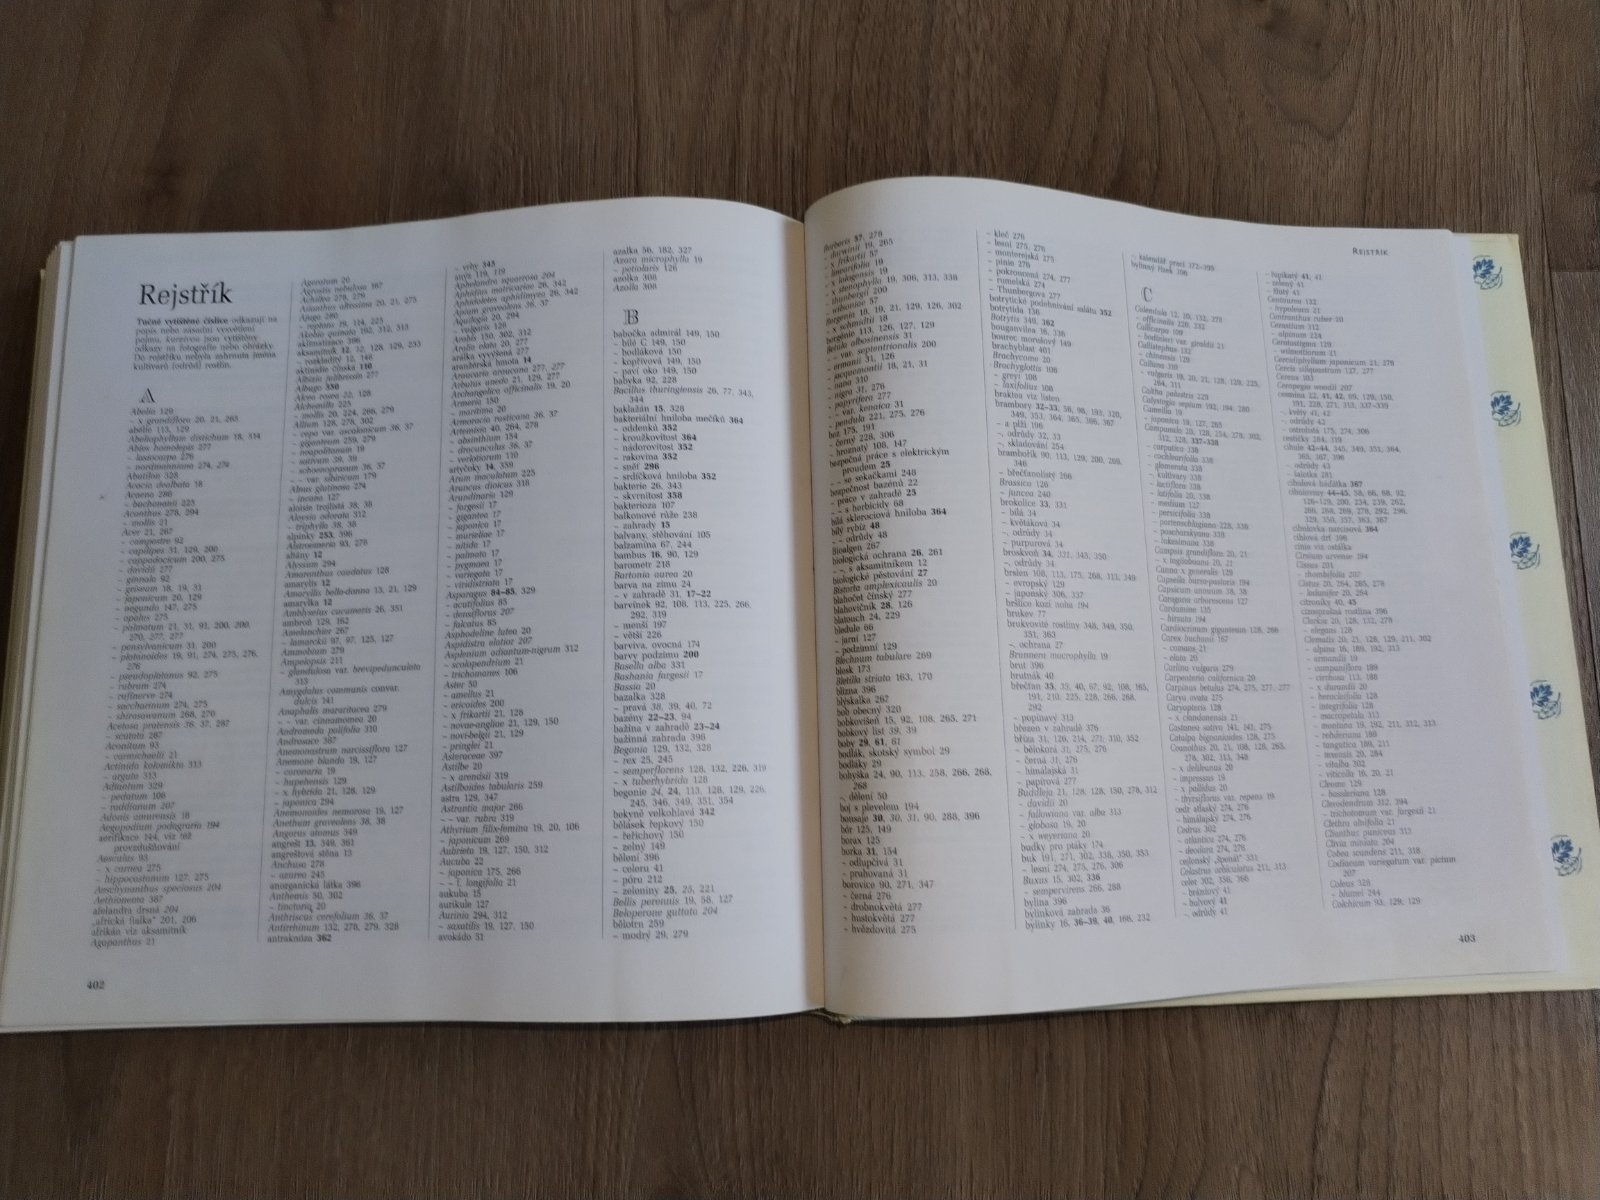 Rejstřík
Tučně vytištěné číslice odkazují na
popis nebo zásadní vysvětlení
pojmu, kurzivou jsou vytištěny
odkazy na fotografie nebo obrázky.
Do rejstříku nebyla zahrnuta jména
kultivarů (odrůd) rostlin.
A
Abelia 129
– x grandiflora 20, 21, 265
abélie 113, 129
Abeliophyllum distichum 18, 314
Abies homolepis 277
– lasiocarpa 276
– nordmanniana 274, 274
Abutilon 328
Acacia dealbata 18
Acaena 286
– buchananii 225
Acanthus 278, 294
– mollis 21
Acer 21, 267
– campestre 92
– capillipes 31, 129, 200
– cappadocicum 200, 275
– davidii 277
– ginnala 92
– griseum 18, 19, 31
– japonicum 20, 129
– negundo 147, 275
– opalus 275
– palmatum 21, 31, 91, 200, 200,
270, 277, 277
– pensylvanicum 31, 200
– platanoides 19, 91, 274, 275, 276,
276
– pseudoplatanus 92, 275
– rubrum 274
– rufinerve 274
– saccharinum 274, 275
– shirasawanum 268, 270
Acetosa pratensis 36, 37, 287
– scutata 287
Aconitum 93
– carmichaelii 21
Actinidia kolomikta 313
– arguta 313
Adiantum 329
– pedatum 106
– raddianum 207
Adonis amurensis 18
Aegopodium podagraria 194
aerifikace 244, viz též
provzdušňování
Aesculus 93
– x carnea 275
– hippocastanum 127, 275
Aeschynanthus speciosus 204
Aethionema 387
afelandra drsná 204
„africká fialka“ 201, 206
afrikán viz aksamitník
Agapanthus 21
Ageratum 20
Agrostis nebulosa 387
Achillea 278, 279
Ailanthus altissima 20, 21, 275
Ajuga 286
– reptans 19, 114, 225
Akebia quinata 192, 312, 313
aklimatizace 396
aksamitník 12, 12, 128, 129, 253
– rozkladitý 12, 146
aktinidie čínská 110
Albizia julibrissin 277
Albugo 350
Alcea rosea 22, 128
Alchemilla 225
– mollis 20, 224, 266, 279
Allium 128, 278, 302
– cepa var. ascalonicum 36, 37
– giganteum 259, 279
– neapolitanum 19
– sativum 39, 39
– schoenoprasum 36, 37
– – var. sibiricum 179
Alnus glutinosa 274
– incana 127
aloisie trojlistá 38, 38
Aloysia odorata 312
– triphylla 38, 38
alpinky 253, 396
Alstroemeria 93, 278
altány 12
Alyssum 294
Amaranthus caudatus 128
amarylis 12
Amaryllis bello-donna 13, 21, 129
amarylka 12
Amblyseius cucumeris 26, 351
ambroň 129, 162
Amelanchier 267
– lamarckii 97, 97, 125, 127
Ammobium 279
Ampelopsis 211
– glandulosa var. brevipedunculata
313
Amygdalus communis convar.
dulcis 141
Anaphalis margaritacea 279
– – var. cinnamomea 20
Andromeda polifolia 310
Androsace 387
Anemonastrum narcissiflora 127
Anemone blanda 19, 127
– coronaria 19
– hupehensis 129
– x hybrida 21, 128, 129
– japonica 294
Anemonoides nemorosa 19, 127
Anethum graveolens 38, 38
Angorus atomus 349
angrešt 13, 349, 361
angreštová stěna 13
Anchusa 278
– azurea 245
anorganická látka 396
Anthemis 50, 302
– tinctoria 20
Anthriscus cerefolium 36, 37
Antirrhinum 132, 278, 279, 328
antraknóza 362
– vrby 343
anýz 119, 119
Aphelandra squarrosa 204
Aphidius matricariae 26, 342
Aphidoletes aphidimyza 26, 342
Apium graveolens 36, 37
Aquilegia 20, 294
– vulgaris 128
Arabis 150, 302, 312
Aralia elata 20, 277
arálka vyvýšená 277
aranžérská hmota 14
Araucaria araucana 277, 277
Arbutus unedo 21, 129, 277
Archangelica officinalis 19, 20
Armeria 150
– maritima 20
Armoracia rusticana 36, 37
Artemisia 40, 264, 278
– absinthium 154
– dracunculus 36, 37
– verlotiorum 110
artyčoky 14, 359
Arum maculatum 225
Aruncus dioicus 318
Arundinaria 129
– fargesii 17
– gigantea 17
– japonica 17
– murieliae 17
– nitida 17
– palmata 17
– pygmaea 17
– variegata 17
– viridistriata 17
Asparagus 84–85, 329
– acutifolius 85
– densiflorus 207
– falcatus 85
Asphodeline lutea 20
Aspidistra elatior 207
Asplenium adiantum-nigrum 312
– scolopendrium 21
– trichomanes 106
Aster 50
– amellus 21
– ericoides 200
– x frikartii 21, 128
– novae-angliae 21, 129, 150
– novi-belgii 21, 129
– pringlei 21
Asteraceae 397
Astilbe 20
– x arendsii 319
Astilboides tabularis 259
astra 129, 347
Astrantia major 266
– – var. rubra 319
Athyrium filix-femina 19, 20, 106
– japonicum 269
Aubrieta 19, 127, 150, 312
Aucuba 22
– japonica 175, 266
– – f. longifolia 21
aukuba 15
aurikule 127
Aurinia 294, 312
– saxatilis 19, 127, 150
avokádo 51
azalka 56, 182, 327
Azara microphylla 19
– petiolaris 126
azolka 308
Azolla 308
B
babočka admirál 149, 150
– bílé C 149, 150
– bodláková 150
– kopřivová 149, 150
– paví oko 149, 150
babyka 92, 228
Bacillus thuringiensis 26, 77, 343,
344
baklažán 15, 328
bakteriální hniloba mečíků 364
– oddenků 352
– kroužkovitost 364
– nádorovitost 352
– rakovina 352
– sněť 296
– srdíčková hniloba 352
bakterie 26, 343
– skvrnitost 358
bakterioza 107
balkonové růže 238
– zahrady 15
balvany, stěhování 105
balzamína 67, 244
bambus 16, 90, 129
barometr 218
Bartonia aurea 20
barva na zimu 24
– v zahradě 31, 17–22
barvínek 92, 108, 113, 225, 266,
292, 319
– menší 197
– větší 226
barviva, ovocná 174
barvy podzimu 200
Basella alba 331
Bashania fargesii 17
Bassia 20
bazalka 328
– pravá 38, 39, 40, 72
bazény 22–23, 94
bažina v zahradě 23–24
bažinná zahrada 396
Begonia 129, 132, 328
– rex 25, 245
– semperflorens 128, 132, 226, 319
– x tuberhybrida 128
begonie 24, 24, 113, 128, 129, 226,
245, 346, 349, 351, 354
bekyně velkohlavá 342
bělásek řepkový 150
– řeřichový 150
– zelný 149
bělení 396
– celeru 41
– póru 212
– zeleniny 25, 25, 221
Bellis perennis 19, 58, 127
Beloperone guttata 204
běloten 259
– modrý 29, 279
402
Berberis 57, 276
– darwinii 19, 265
– x frikartii 57
– linearifolia 19
– x lologensis 19
– x stenophylla 19, 306, 313, 338
– thunbergii 200
– wilsoniae 57
Bergenia 18, 19, 21, 129, 126, 302
– x schmidtii 18
bergénie 113, 126, 127, 129
Betula albosinensis 31
– – var. septentrionalis 200
– ermanii 31, 126
– jacquemontii 18, 21, 31
– nana 310
– nigra 31, 276
– papyrifera 277
– – var. kenaica 31
– pendula 221, 275, 276
bez 175, 191
– černý 228, 306
– hroznatý 108, 147
bezpečná práce s elektrickým
proudem 25
– – se sekačkami 248
bezpečnost bazénů 22
– práce v zahradě 25
– – s herbicidy 68
bílá sklerociová hniloba 364
bílý rybíz 48
– – odrůdy 48
Bioalgen 267
biologická ochrana 26, 261
– –, s aksamitníkem 12
biologické pěstování 27
Bistorta amplexicaulis 20
blahočet čínský 277
blahovičník 28, 126
blatouch 24, 229
bledule 66
– jarní 127
– podzimní 129
Blechnum tabulare 269
blesk 173
Bletilla striata 163, 170
blizna 396
blýskalka 267
bob obecný 320
bobkovišeň 15, 92, 108, 265, 271
bobkový list 39, 39
boby 29, 61, 61
bodlák, skotský symbol 29
bodláky 29
bohyška 24, 90, 113, 258, 266, 268,
268
–, dělení 50
boj s plevelem 194
bonsaje 30, 30, 31, 90, 288, 396
bór 125, 149
borax 125
borka 31, 154
– odlupčivá 31
– pruhovaná 31
borovice 90, 271, 347
– černá 276
– drobnokvětá 277
– hustokvětá 277
– hvězdovitá 275
– kleč 276
– lesní 275, 276
– monterejská 275
– pinie 276
– pokroucená 274, 277
– rumelská 274
– Thunbergova 277
botrytické podehnívání salátu 352
botrytida 136
Botrytis 349, 362
bouganvilea 16, 336
bourec morušový 149
brachyblast 401
Brachycome 20
Brachyglottis 106
– greyi 108
– laxifolius 108
braktea viz listen
brambory 32–33, 56, 98, 193, 320,
349, 353, 364, 365, 366, 367
– a plži 196
–, odrůdy 32, 33
–, skladování 254
brambořík 90, 113, 129, 200, 269,
346
– břečťanolistý 266
Brassica 126
– juncea 240
brokolice 33, 331
– bílá 34
– květáková 34
–, odrůdy 34
– purpurová 34
broskvoň 34, 331, 345, 350
–, odrůdy 34
brslen 108, 113, 175, 268, 313, 349
– evropský 129
– japonský 306, 337
bršlice kozí noha 194
brukev 77
brukvovité rostliny 348, 349, 350,
351, 363
–, ochrana 27
Brunnera macrophylla 19
brut 396
brutnák 40
břečťan 35, 35, 40, 67, 92, 108, 165,
191, 210, 225, 228, 266, 268,
292
– popínavý 313
březen v zahradě 376
bříza 31, 126, 214, 271, 310, 352
– bělokorá 31, 275, 276
– černá 31, 276
– himálajská 31
– papírová 277
Buddleja 21, 128, 128, 150, 278, 312
– davidii 20
– fallowiana var. alba 313
– globosa 19, 20
– x weyeriana 20
budky pro ptáky 174
buk 191, 271, 302, 338, 350, 353
– lesní 274, 275, 276, 306
Buxus 15, 302, 336
– sempervirens 266, 288
bylina 396
bylinková zahrada 36
bylinky 16, 36–39, 40, 166, 232
– kalendář prací 372–395
bylinný řízek 106
Rejstřík
C
Calendula 12, 20, 132, 278
– officinalis 220, 232
Callicarpa 109
– bodinieri var. giraldii 21
Callistephus 132
– chinensis 129
Calluna 310
– vulgaris 19, 20, 21, 128, 129, 225,
264, 311
Caltha palustris 229
Calystegia sepium 192, 194, 280
Camellia 19
– japonica 19, 127, 265
Campanula 20, 128, 254, 278, 302,
312, 328, 337–338
– carpatica 338
– cochleariifolia 338
– glomerata 338
– kultivary 338
– lactiflora 338
– latifolia 20, 338
– medium 127
– persicifolia 338
– portenschlagiana 228, 338
– poscharskyana 338
– takesimana 338
Campsis grandiflora 20, 21
– x tagliabuana 20, 21
Canna x generalis 129
Capsella bursa-pastoris 194
Capsicum annuum 38, 38
Caragana arborescens 127
Cardamine 135
– hirsuta 194
Cardiocrinum giganteum 128, 266
Carex buchanii 167
– comans 21
– elata 20
Carlina vulgaris 279
Carpenteria californica 20
Carpinus betulus 274, 275, 277, 277
Carya ovata 275
Caryopteris 128
– x clandonensis 21
Castanea sativa 141, 141, 275
Catalpa bignonioides 128, 275
Ceanothus 20, 21, 108, 128, 265,
278, 302, 313, 348
– x delileanus 20
– impressus 19
– x pallidus 20
– thyrsiflorus var. repens 19
cedr atlaský 274, 276
– himálajský 274, 276
Cedrus 302
– atlantica 274, 276
– deodara 274, 276
cejlonský „špenát“ 331
Celastrus orbiculatus 211, 313
celer 302, 356, 366
– bránkový 41
– bulvový 41
–, odrůdy 41
– řapíkatý 41, 41
– zelený 41
– žlutý 41
Centaurea 132
– hypoleuca 21
Centranthus ruber 20
Cerastium 312
– alpinum 224
Ceratostigma 129
– willmottianum 21
Cercidiphyllum japonicum 21, 270
Cercis siliquastrum 127, 277
Cereus 103
Ceropegia woodii 207
cesmína 22, 41, 42, 89, 129, 150,
191, 228, 271, 313, 337–339
– květy 41, 42
–, odrůdy 42
– ostrolistá 175, 274, 306
cestičky 184, 319
cibule 42–44, 345, 349, 351, 364,
365, 367, 396
–, odrůdy 43
– šalotka 281
cibulová háďátka 367
cibuloviny 44–45, 58, 66, 68, 92,
126–129, 200, 254, 259, 262,
266, 268, 269, 278, 292, 296,
329, 350, 357, 363, 367
cibulovka narcisová 364
cihlová drť 398
cínie viz ostálka
Cirsium arvense 194
Cissus 201
– rhombifolia 207
Cistus 20, 264, 265, 278
– ladanifer 20, 264
citroníky 40, 45
cizosprašná rostlina 396
Clarkia 20, 128, 132, 278
– elegans 128
Clematis 20, 21, 128, 129, 211, 302
– alpina 16, 189, 192, 313
– armandii 19
– campaniflora 189
– cirrhosa 113, 188
– x durandii 20
– heracleifolia 128
– integrifolia 128
– macropetala 313
– montana 19, 192, 211, 312, 313
– rehderiana 188
– tangutica 189, 211
– texensis 20, 284
– vitalba 302
– viticella 16, 20, 21
Cleome 129
– hassleriana 128
Clerodendrum 312, 394
– trichotomum var. fargesii 21
Clethra alnifolia 21
Clianthus puniceus 313
Clivia miniata 204
Cobea scandens 211, 318
Codiaeum variegatum var. pictum
207
Coleus 328
– blumei 244
Colchicum 93, 129, 129
403